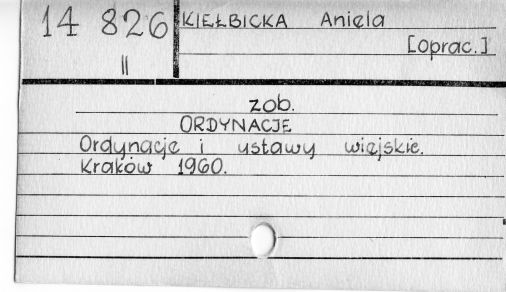 14 826
II
KIEŁBICKA Aniela
[oprac.]
zob.
ORDYNACJE
Ordynacje i ustawy wiejskie.
Kraków 1960.